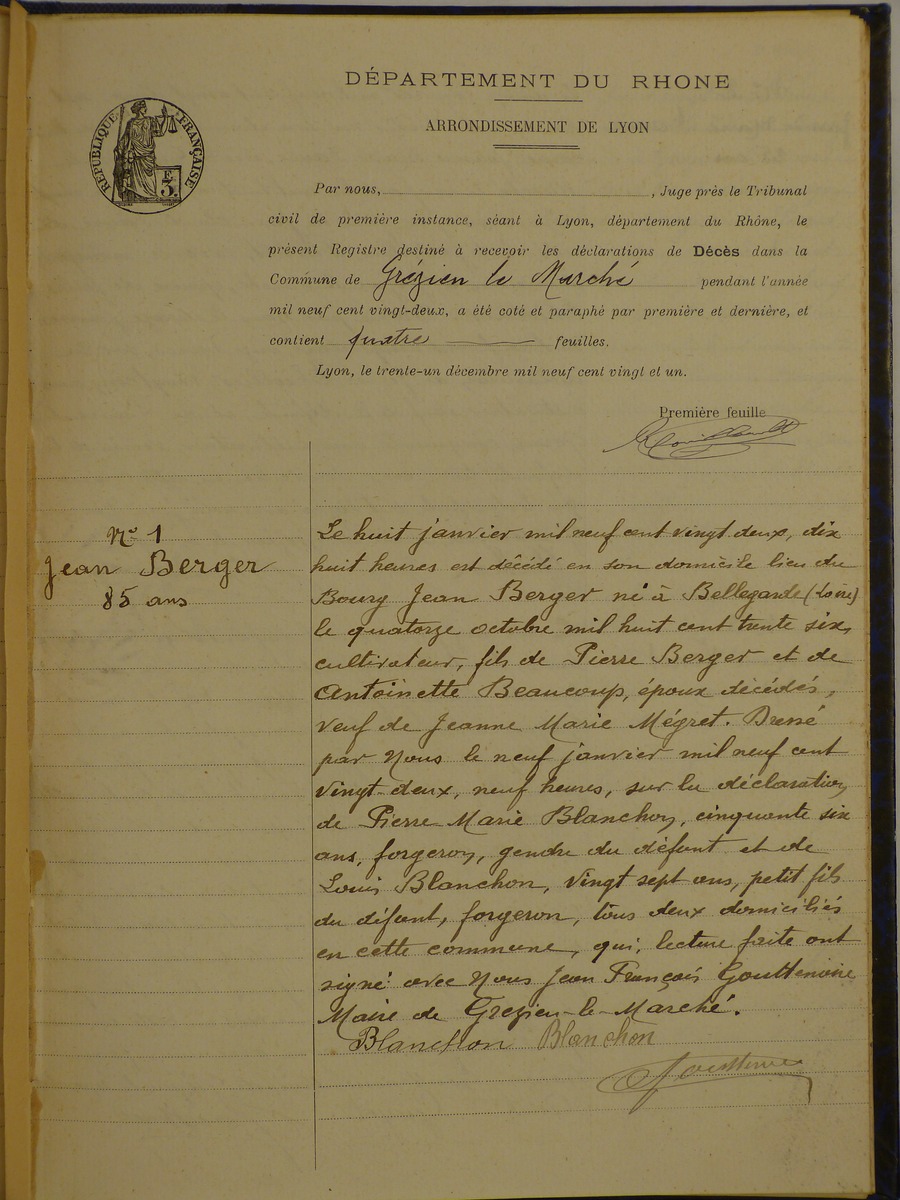 DÉPARTEMENT DU RHONE
ARRONDISSEMENT DE LYON
RÉPUBLIQUE FRANÇAISE
F.
3.
Par nous, , Juge près le Tribunal
civil de première instance, séant à Lyon, département du Rhône, le
présent Registre destiné à recevoir les déclarations de Décès dans la
Commune de Grézien le Marché pendant l'année
mil neuf cent vingt-deux, a été coté et paraphé par première et dernière, et
contient quatre feuilles.
Lyon, le trente-un décembre mil neuf cent vingt et un.
Première feuille
No 1
Jean Berger
85 ans
Le huit janvier mil neuf cent vingt deux, dix
huit heures est décédé en son domicile lieu du
Bourg Jean Berger né à Bellegarde (Loire)
le quatorze octobre mil huit cent trente six,
cultivateur, fils de Pierre Berger et de
Antoinette Beaucoup, époux décédés,
veuf de Jeanne Marie Mégret. Dressé
par Nous le neuf janvier mil neuf cent
vingt-deux, neuf heures, sur la déclaration
de Pierre Marie Blanchon, cinquante six
ans, forgeron, gendre du défunt et de
Louis Blanchon, vingt sept ans, petit fils
du défunt, forgeron, tous deux domiciliés
en cette commune, qui, lecture faite ont
signé avec Nous Jean François Gouttenoire
Maire de Grezien-le-Marché.
Blanchon Blanchon